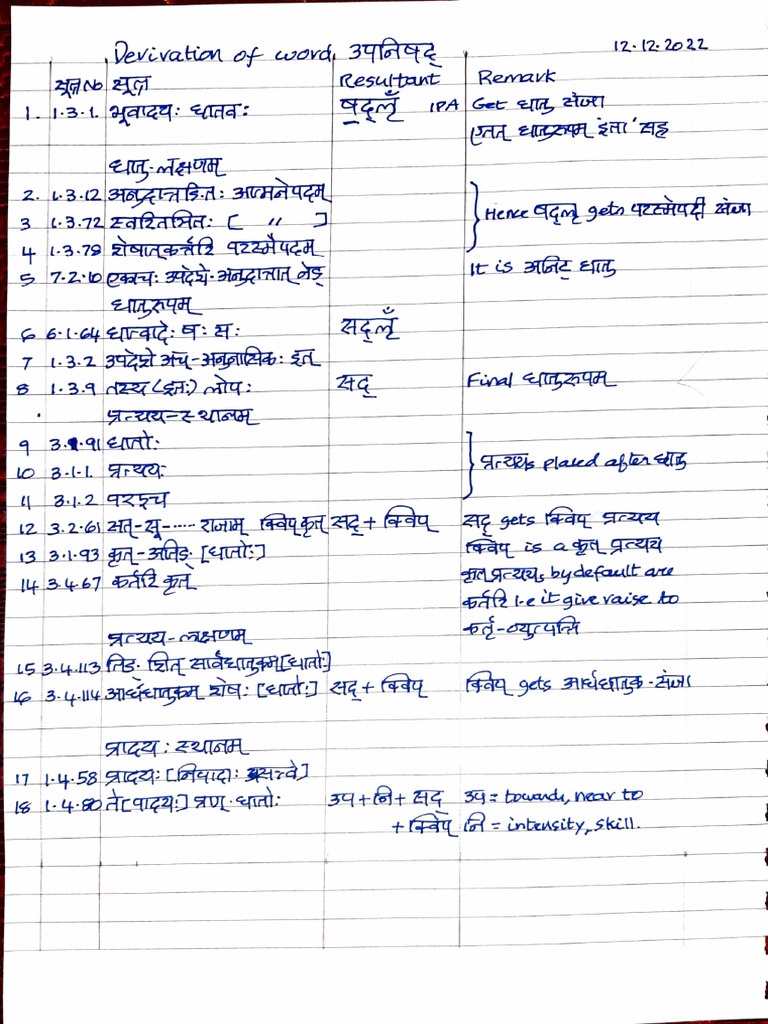 Devivation of word, उपनिषद् 12.12.2022
सूत्र No सूत्र Resultant Remark
1. 1.3.1. भूवादयः धातवः षद्लृँ 1PA Get धातु संज्ञा
एतत् धातुरूपम्
धातु-लक्षणम्
2. 1.3.12 अनुदात्तङितः आत्मनेपदम्
3 1.3.72 स्वरितञितः [ " ] Hence षद्लृ gets परस्मैपदी संज्ञा
4 1.3.78 शेषात्कर्त्तरि परस्मैपदम्
5 7.2.10 एकाचः उपदेशे-अनुदात्तात् नेड् It is अनिट् धातु
धातुरूपम्
6 6.1.64 धात्वादेः षः सः सद्लृँ
7 1.3.2 उपदेशे अच्-अनुनासिकः इत्
8 1.3.9 तस्य (इतः) लोपः सद् Final धातुरूपम्
प्रत्यय-स्थानम्
9 3.1.91 धातोः
10 3.1.1. प्रत्ययः प्रत्यय is placed after धातु
11 3.1.2 परश्च
12 3.2.61 सत्-सू-..... राजाम् क्विप् कृत् सद् + क्विप् सद् gets क्विप् प्रत्यय
13 3.1.93 कृत्-अतिङ् [धातोः] क्विप् is a कृत् प्रत्यय
14 3.4.67 कर्तरि कृत् कृत् प्रत्ययs by default are
कर्तरि i.e it give raise to
कर्तृ-व्युत्पत्ति
प्रत्यय-लक्षणम्
15 3.4.113 तिङ् शित् सार्वधातुकम् [धातोः]
16 3.4.114 आर्धधातुकम् शेषः [धातोः] सद् + क्विप् क्विप् gets आर्धधातुक-संज्ञा
प्रादयः स्थानम्
17 1.4.58 प्रादयः [निपाताः असत्वे]
18 1.4.80 ते [प्रादयः] प्राग् धातोः उप + नि + सद् उप = towards, near to
+ क्विप् नि = intensity, skill.